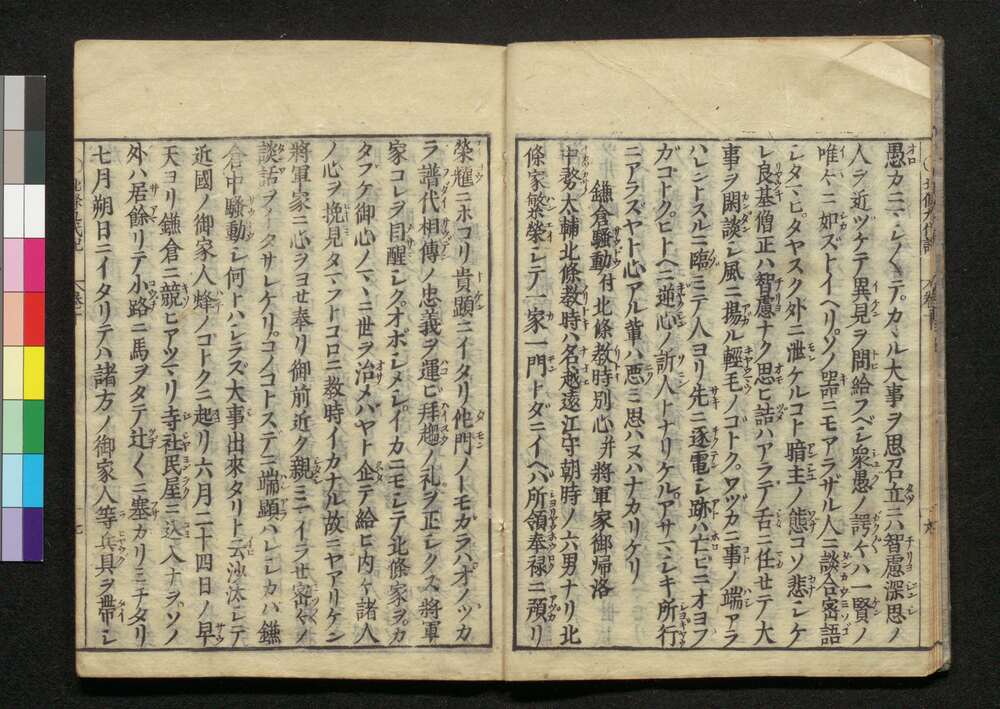 愚カニマシ〳〵テカヽル大事ヲ思召立ニハ智慮深思ノ
人ヲ近ヅケテ異見ヲ問給フベシ衆愚ノ諤々ハ一賢ノ
唯々ニ如ズトイヘリソノ器ニモアラザル人ニ談合密語
シタマヒタヤスク外ニ泄ケルコト暗主ノ態コソ悲シケ
レ良基僧正ハ智慮ナク思ヒ詰ハアラデ舌ニ任セテ大
事ヲ閑談シ風ニ揚ル輕毛ノゴトクワヅカニ事ノ端アラ
ハレントスルニ臨ミテ人ヨリ先ニ逐電シ跡ハ亡ビニオヨフ
ガゴトクヒトヘニ逆心ノ訴人トナリケルアサマシキ所行
ニアラズヤト心アル輩ハ惡ミ思ハヌハナカリケリ
鎌倉騷動付北條教時別心并將軍家御帰洛
中務大輔北條教時ハ名越遠江守朝時ノ六男ナリ北
條家繁榮シテ一家一門トダニイヘバ所領奉禄ニ預リ
榮耀ニホコリ貴顯ニイタリ他門ノトモガラハオノヅカ
ラ譜代相傳ノ忠義ヲ運ヒ拜趨ノ礼ヲ正シクス將軍
家コレヲ目醒シクオボシメシイカニモシテ北條家ヲカ
タブケ御心ノマヽニ世ヲ治メバヤト企テ給ヒ内々諸人
ノ心ヲ挽見タマフトコロニ教時イカナル故ニヤアリケン
將軍家ニ心ヲヨセ奉リ御前近ク親ミマイラセ密々ノ
談話ヲイタサレケリコノコトステニ端顯ハレシカバ鎌
倉中騷動シ何トハシラズ大事出來タリト云沙汰シテ
近國ノ御家人蜂ノコトクニ起リ六月二十四日ノ早
天ヨリ鎌倉ニ競ヒアツマリ寺社民屋ニ込入ナヲソノ
外ハ居餘リテ小路ニ馬ヲタテ辻々ニ塞カリミチタリ
七月朔日ニイタリテハ諸方ノ御家人等兵具ヲ帶シ